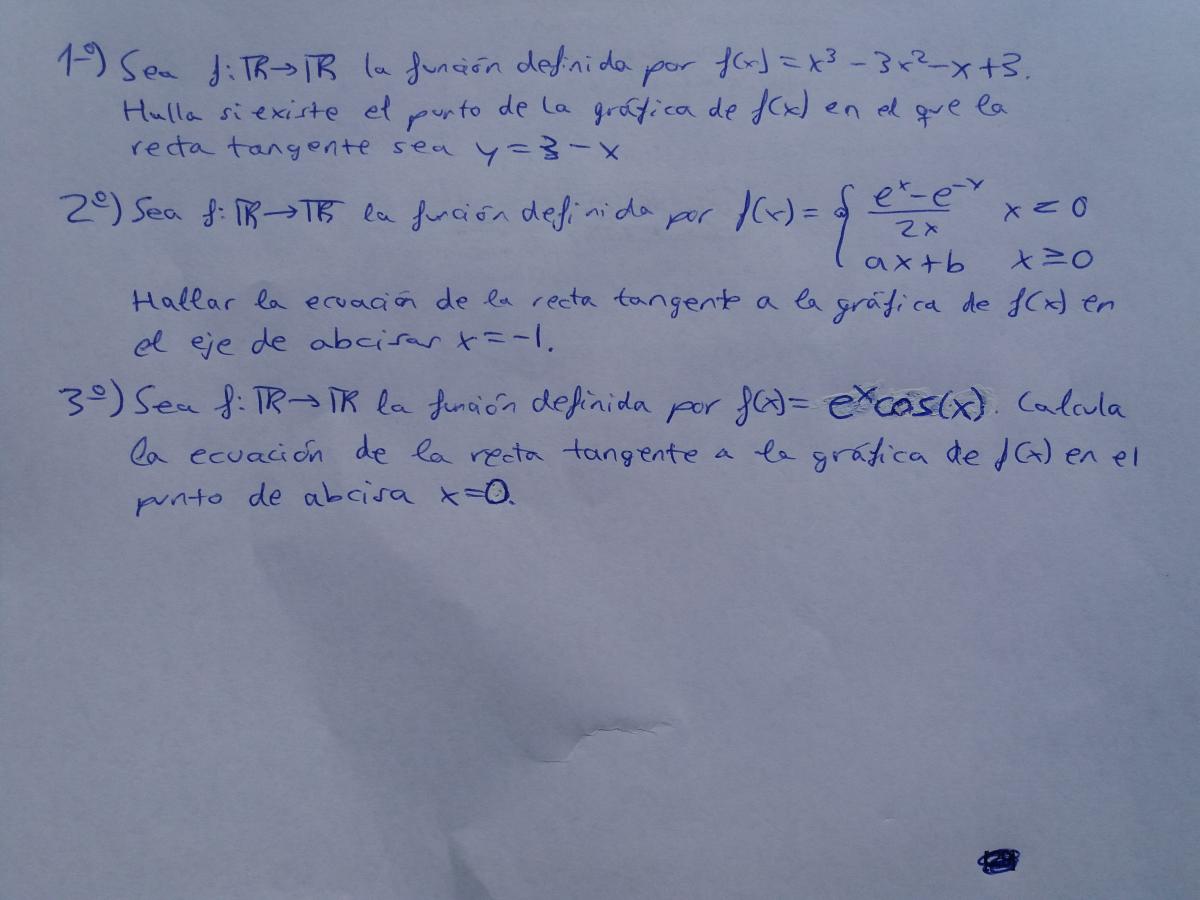 1º) Sea f: ℝ→ℝ la función definida por f(x) = x³ - 3x² - x + 3.
Hulla si existe el punto de la gráfica de f(x) en el que la
recta tangente sea y = 3 - x
2º) Sea f: ℝ→ℝ la función definida por f(x) = { (eˣ - e⁻ˣ)/2x x < 0
ax+b x ≥ 0
Hallar la ecuación de la recta tangente a la gráfica de f(x) en
el eje de abcisas x = -1.
3º) Sea f: ℝ→ℝ la función definida por f(x) = eˣcos(x). Calcula
la ecuación de la recta tangente a la gráfica de f(x) en el
punto de abcisa x=0.